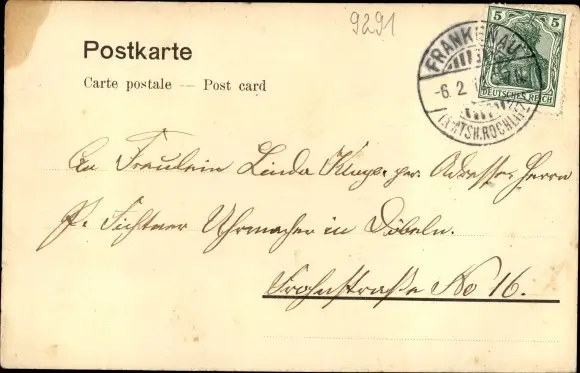 9291
Postkarte
Carte postale — Post card
FRANKENAU
-6. 2.
(AMTSH. ROCHLITZ)
5 5
DEUTSCHES REICH
An Fräulein Linda per Adresse Herrn
P. Fichtner Uhrmacher in Döbeln.
Frohnstraße No 16.